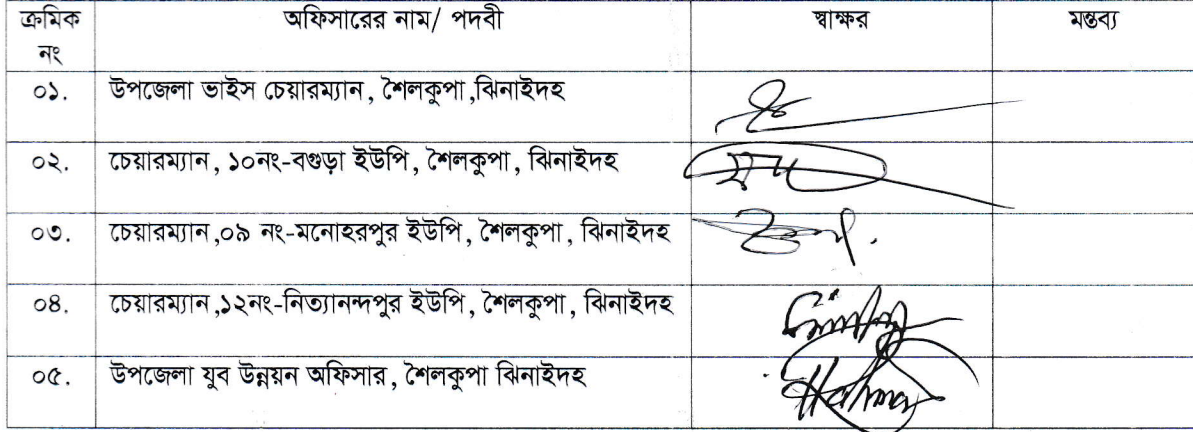 ক্রমিক নং অফিসারের নাম/ পদবী স্বাক্ষর মন্তব্য
০১. উপজেলা ভাইস চেয়ারম্যান, শৈলকুপা ,ঝিনাইদহ
০২. চেয়ারম্যান, ১০নং-বগুড়া ইউপি, শৈলকুপা, ঝিনাইদহ
০৩. চেয়ারম্যান,০৯ নং-মনোহরপুর ইউপি, শৈলকুপা, ঝিনাইদহ
০৪. চেয়ারম্যান,১২নং-নিত্যানন্দপুর ইউপি, শৈলকুপা, ঝিনাইদহ
০৫. উপজেলা যুব উন্নয়ন অফিসার, শৈলকুপা ঝিনাইদহ